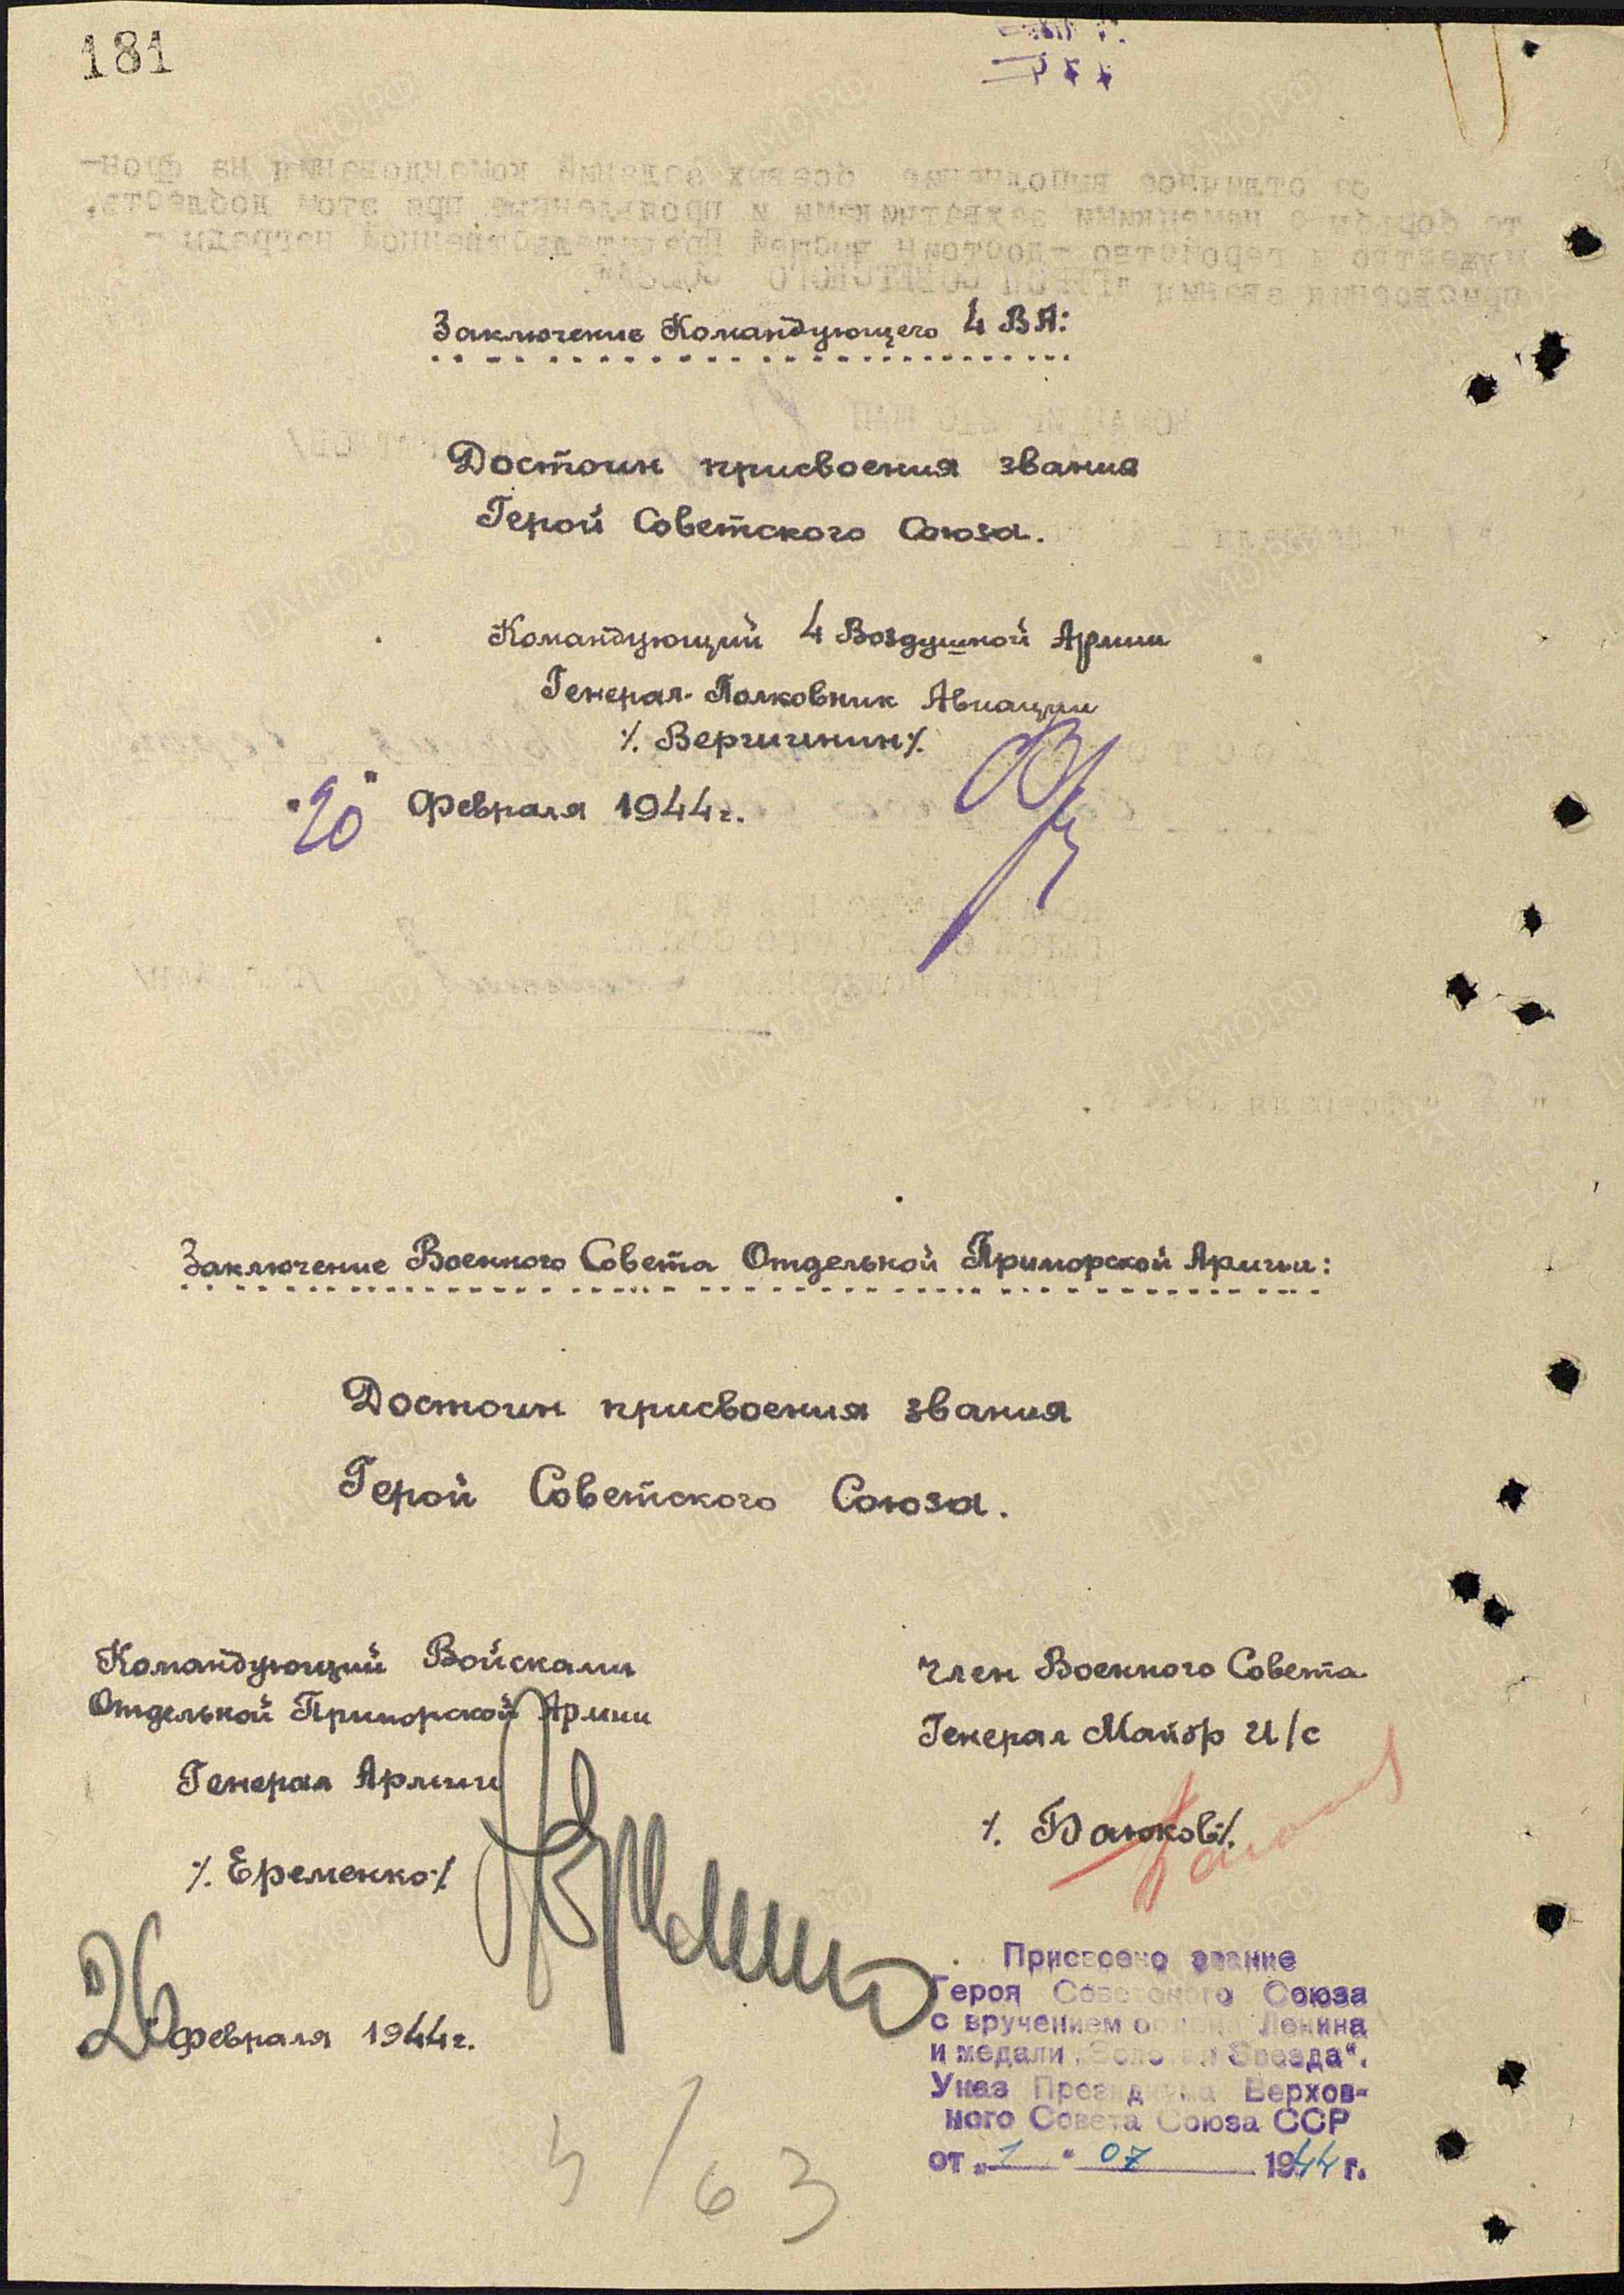 181
Заключение Командующего 4 ВА:
Достоин присвоения звания
Герой Советского Союза.
Командующий 4 Воздушной Армии
Генерал-Полковник Авиации
/. Вершинин/.
"20" Февраля 1944г.
Заключение Военного Совета Отдельной Приморской Армии:
Достоин присвоения звания
Герой Советского Союза.
Командующий Войсками
Отдельной Приморской Армии
Генерал Армии
/. Еременко/.
26 февраля 1944г.
Член Военного Совета
Генерал Майор И/с
/. Баюков/.
Присвоено звание
Героя Советского Союза
с вручением ордена Ленина
и медали „Золотая Звезда“.
Указ Президиума Верхов-
ного Совета Союза ССР
от „1“ 07 1944 г.
63
ЦАМО.РФ